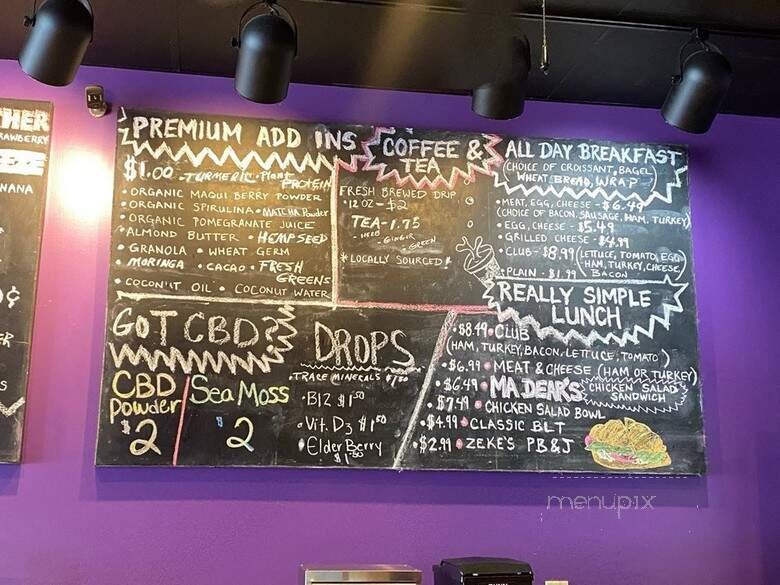 HER
RAWBERRY
NANA
ER
S
PREMIUM ADD INS
$1.00 - TURMERIC · Plant
PROTEIN
• ORGANIC MAQUI BERRY POWDER
• ORGANIC SPIRULINA • MATCHA Powder
• ORGANIC POMEGRANATE JUICE
• ALMOND BUTTER • HEMPSEED
• GRANOLA • WHEAT GERM
• MORINGA • CACAO • FRESH
GREENS
• COCONUT OIL • COCONUT WATER
COFFEE &
TEA
FRESH BREWED DRIP
• 12 OZ - $2
TEA - 1.75
- GINGER
- GREEN
* LOCALLY SOURCED *
ALL DAY BREAKFAST
(CHOICE OF CROISSANT, BAGEL
WHEAT BREAD, WRAP)
• MEAT, EGG, CHEESE - $6.49
(CHOICE OF BACON, SAUSAGE, HAM, TURKEY)
• EGG, CHEESE - $5.49
• GRILLED CHEESE - $4.99
• CLUB - $8.99 (LETTUCE, TOMATO, EGG
HAM, TURKEY, CHEESE,
BACON)
• PLAIN - $1.99
REALLY SIMPLE
LUNCH
• $8.49 • CLUB
(HAM, TURKEY, BACON, LETTUCE, TOMATO)
• $6.99 • MEAT & CHEESE (HAM OR TURKEY)
• $6.49 • MA DEAR'S CHICKEN SALAD
SANDWICH
• $7.49 • CHICKEN SALAD BOWL
• $4.99 • CLASSIC BLT
• $2.99 • ZEKE'S PB&J
GOT CBD?
CBD
Powder
$2
Sea Moss
$2
DROPS
• TRACE MINERALS $1.50
• B12 $1.50
• Vit. D3 $1.50
• Elder Berry
$1.50
menupix